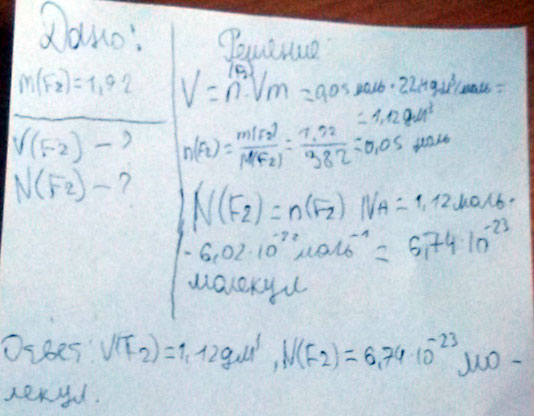 Дано:
m(F2)=1,92
V(F2) - ?
N(F2) - ?
Решение:
V = n(F2)·Vm = 0,05 моль · 22,4 дм³/моль =
= 1,12 дм³
n(F2) = m(F2)/M(F2) = 1,92/382 = 0,05 моль
N(F2) = n(F2) NA = 1,12 моль ·
· 6,02·10⁻²² моль⁻¹ = 6,74·10⁻²³
молекул
Ответ: V(F2)=1,12 дм³, N(F2)=6,74·10⁻²³ мо -
лекул.